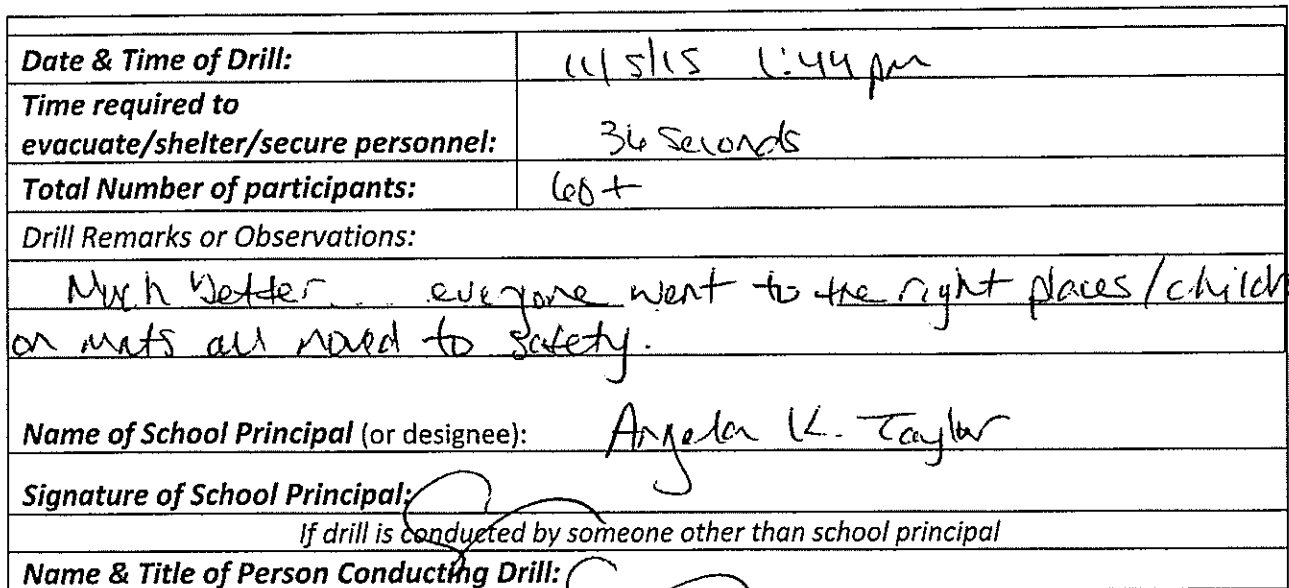 Date & Time of Drill: 11/5/15 1:44 pm
Time required to
evacuate/shelter/secure personnel: 36 Seconds
Total Number of participants: 60+
Drill Remarks or Observations:
Much better... everyone went to the right places/child
on mats all moved to safety.
Name of School Principal (or designee): Angela K. Taylor
Signature of School Principal:
If drill is conducted by someone other than school principal
Name & Title of Person Conducting Drill: